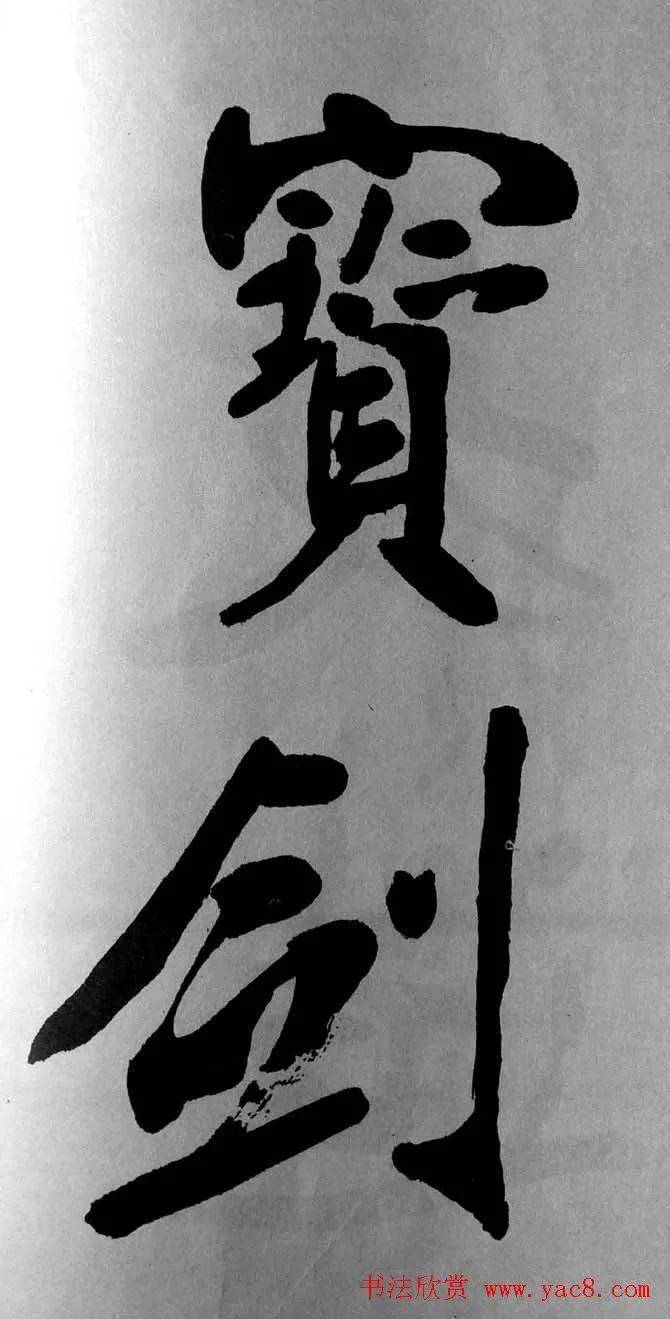 寳
劍
书法欣赏 www.yac8.com